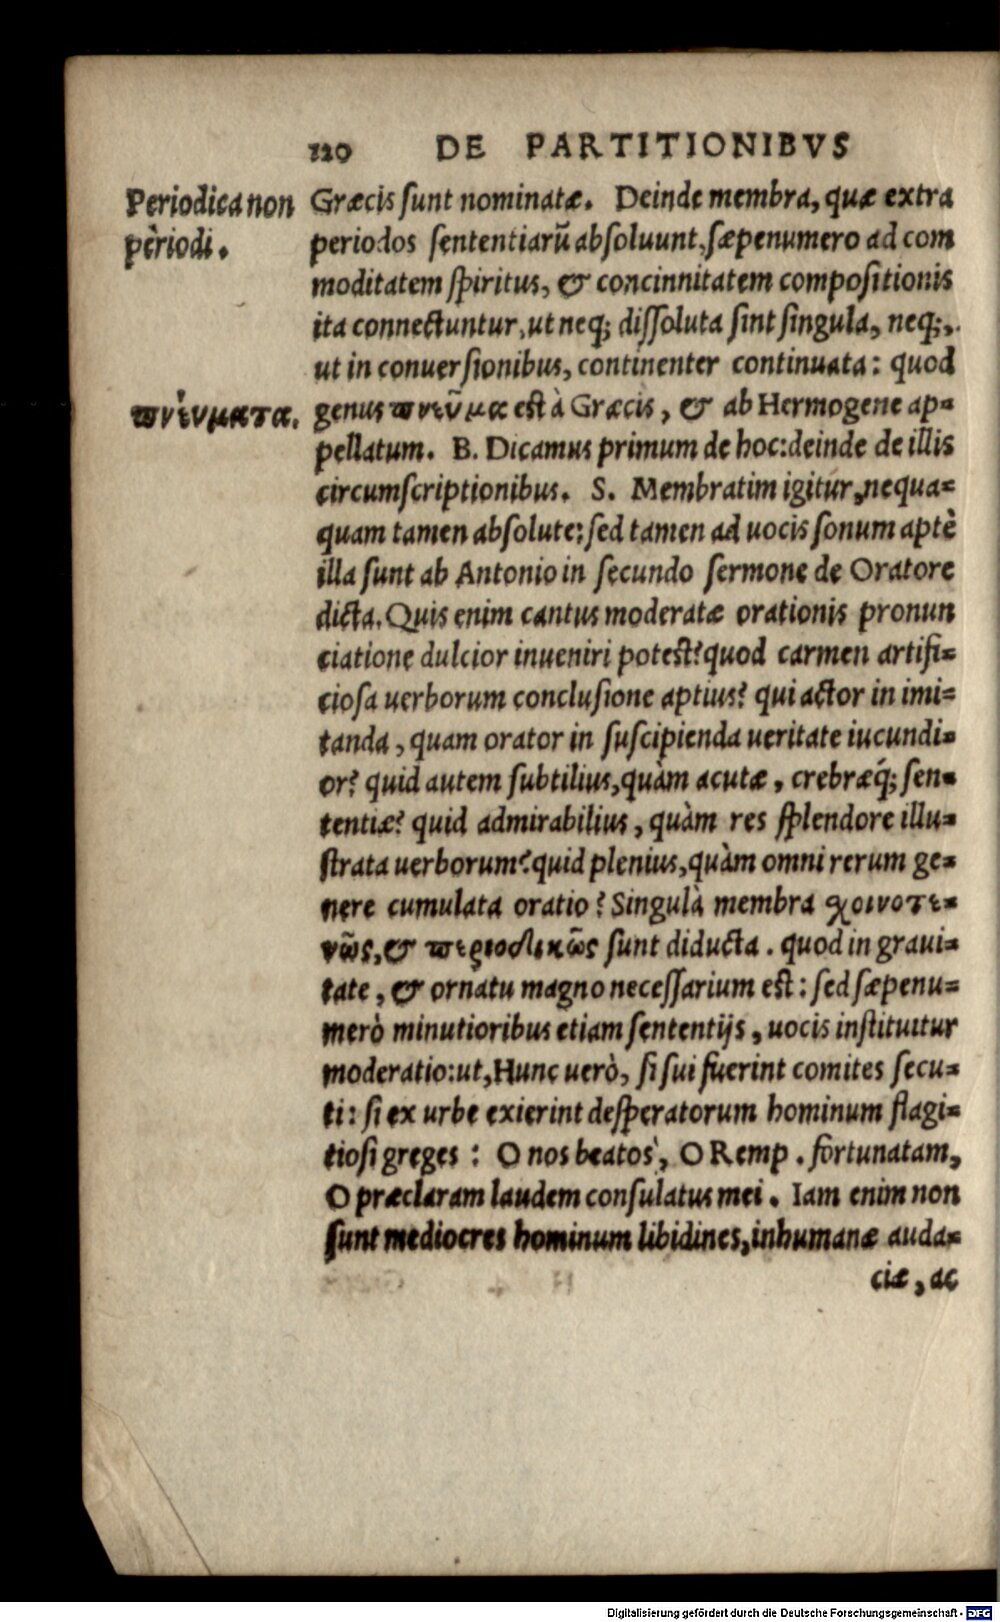 120 DE PARTITIONIBVS
Periodica non
pèriodi.
Græcis sunt nominatæ. Deinde membra, quæ extra
periodos sententiarũ absoluunt, sæpenumero ad com
moditatem spiritus, & concinnitatem compositionis
ita connectuntur, ut neq; dissoluta sint singula, neq;,
ut in conuersionibus, continenter continuata: quod
πνεύματα.
genus πνεῦμα est à Græcis, & ab Hermogene ap=
pellatum. B. Dicamus primum de hoc: deinde de illis
circumscriptionibus. S. Membratim igitur, nequa=
quam tamen absolute: sed tamen ad uocis sonum aptè
illa sunt ab Antonio in secundo sermone de Oratore
dicta. Quis enim cantus moderatæ orationis pronun
ciatione dulcior inueniri potest? quod carmen artifi=
ciosa uerborum conclusione aptius? qui actor in imi=
tanda, quam orator in suscipienda ueritate iucundi=
or? quid autem subtilius, quàm acutæ, crebræq́; sen=
tentiæ? quid admirabilius, quàm res splendore illu=
strata uerborum? quid plenius, quàm omni rerum ge=
nere cumulata oratio? Singula membra χοινοτε=
νῶς, & περιοδικῶς sunt diducta. quod in graui=
tate, & ornatu magno necessarium est: sed sæpenu=
merò minutioribus etiam sententijs, uocis instituitur
moderatio: ut, Hunc uerò, si sui fuerint comites secu=
ti: si ex urbe exierint desperatorum hominum flagi=
tiosi greges: O nos beatos, O Remp. fortunatam,
O præclaram laudem consulatus mei. Iam enim non
sunt mediocres hominum libidines, inhumanæ auda=
ciæ, ac
Digitalisierung gefördert durch die Deutsche Forschungsgemeinschaft - DFG